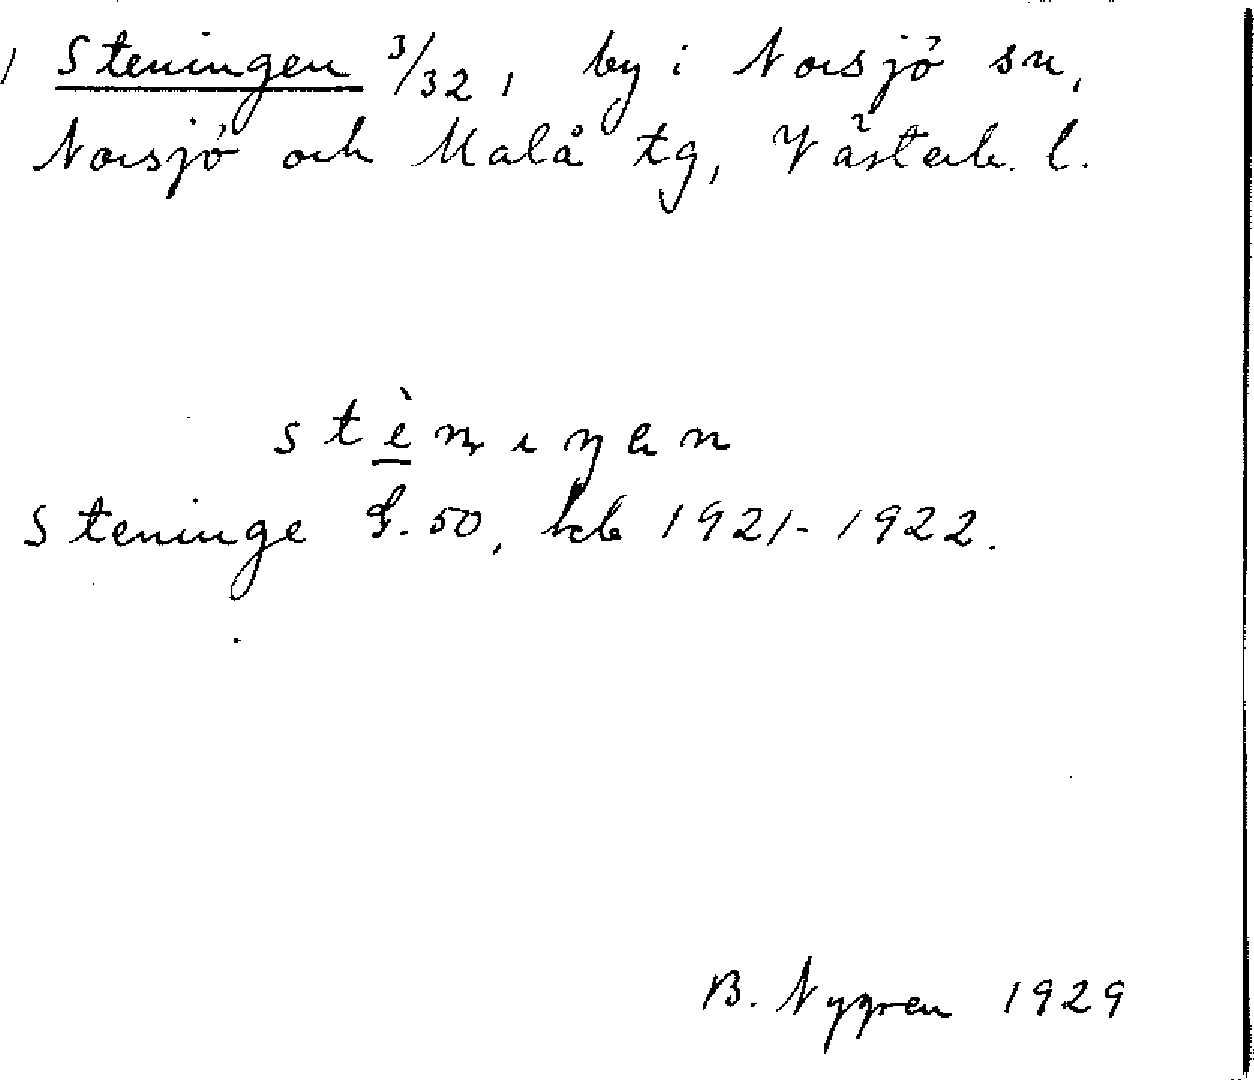 ) Steningen 3/32, by i Norsjö sn,
Norsjö och Malå tg, Västerb. l.
stè̱nıŋen
Steninge S. 50, hcb 1921-1922.
B. Nygren 1929